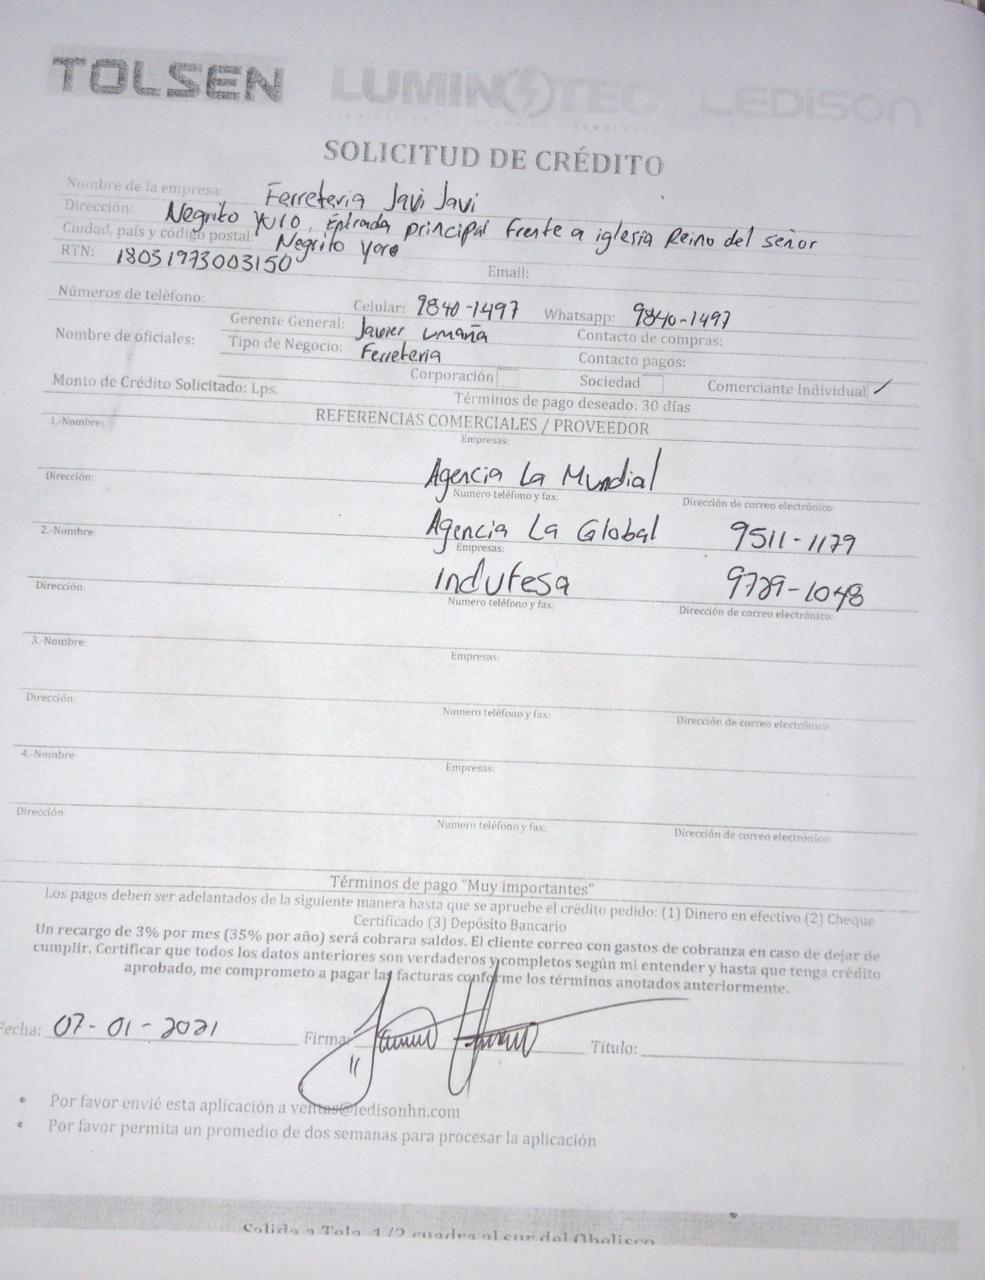 TOLSEN LUMINOTEC LEDISON
SOLICITUD DE CRÉDITO
Nombre de la empresa: Ferreteria Javi Javi
Dirección: Negrito Yoro, Entrada principal frente a iglesia Reino del señor
Ciudad, país y código postal: Negrito yoro
RTN: 18051973003150 Email:
Números de teléfono: Celular: 9840-1497 Whatsapp: 9840-1497
Nombre de oficiales: Gerente General: Javier Umaña Contacto de compras:
Tipo de Negocio: Ferreteria Contacto pagos:
Corporación Sociedad Comerciante Individual
Monto de Crédito Solicitado: Lps. Términos de pago deseado: 30 días
REFERENCIAS COMERCIALES / PROVEEDOR
1.-Nombre: Empresas:
Agencia La Mundial
Dirección: Numero teléfono y fax: Dirección de correo electrónico:
Agencia La Global 9511-1179
2.-Nombre Empresas:
Indufesa 9729-1048
Dirección: Numero teléfono y fax: Dirección de correo electrónico:
3.-Nombre: Empresas:
Dirección: Numero teléfono y fax: Dirección de correo electrónico:
4.-Nombre: Empresas:
Dirección: Numero teléfono y fax: Dirección de correo electrónico:
Términos de pago "Muy importantes"
Los pagos deben ser adelantados de la siguiente manera hasta que se apruebe el crédito pedido: (1) Dinero en efectivo (2) Cheque
Certificado (3) Depósito Bancario
Un recargo de 3% por mes (35% por año) será cobrara saldos. El cliente correo con gastos de cobranza en caso de dejar de
cumplir. Certificar que todos los datos anteriores son verdaderos y completos según mi entender y hasta que tenga crédito
aprobado, me comprometo a pagar las facturas conforme los términos anotados anteriormente.
Fecha: 07-01-2021 Firma: Titulo:
Por favor envié esta aplicación a ventas@ledisonhn.com
Por favor permita un promedio de dos semanas para procesar la aplicación
Salida a Tela, 1/2 cuadra al sur del Obelisco